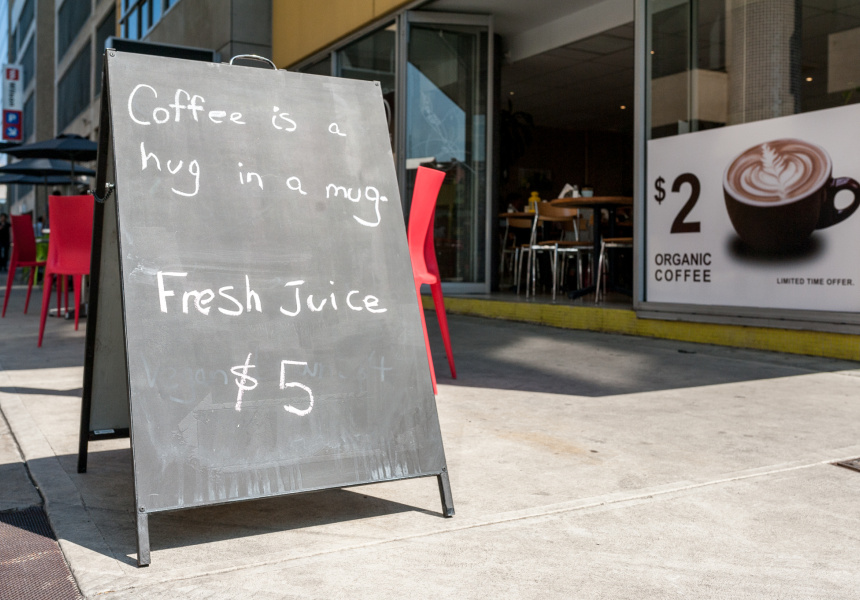 Coffee is a
hug in a mug.
Fresh Juice
$5
$2
ORGANIC
COFFEE
LIMITED TIME OFFER.
P